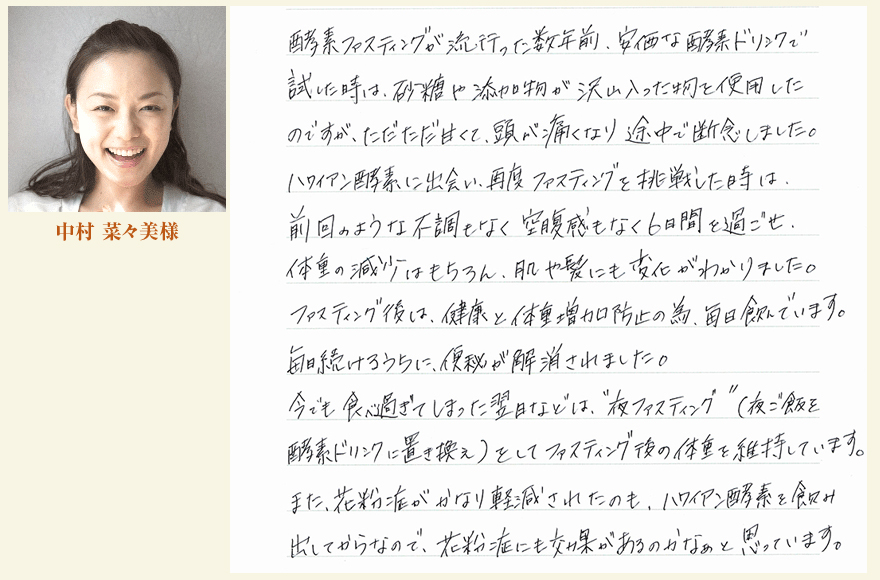 酵素ファスティングが流行った数年前、安価な酵素ドリンクで
試した時は、砂糖や添加物が沢山入った物を使用した
のですが、ただただ甘くて、頭が痛くなり途中で断念しました。
ハワイアン酵素に出会い、再度ファスティングを挑戦した時は、
前回のような不調もなく空腹感もなく6日間を過ごせ、
体重の減少はもちろん、肌や髪にも変化がわかりました。
ファスティング後は、健康と体重増加防止の為、毎日飲んでいます。
毎日続けるうちに、便秘が解消されました。
今でも食べ過ぎてしまった翌日などは、"夜ファスティング"(夜ご飯を
酵素ドリンクに置き換え)をしてファスティング後の体重を維持しています。
また、花粉症がかなり軽減されたのも、ハワイアン酵素を飲み
出してからなので、花粉症にも効果があるのかなぁと思っています。
中村 菜々美様